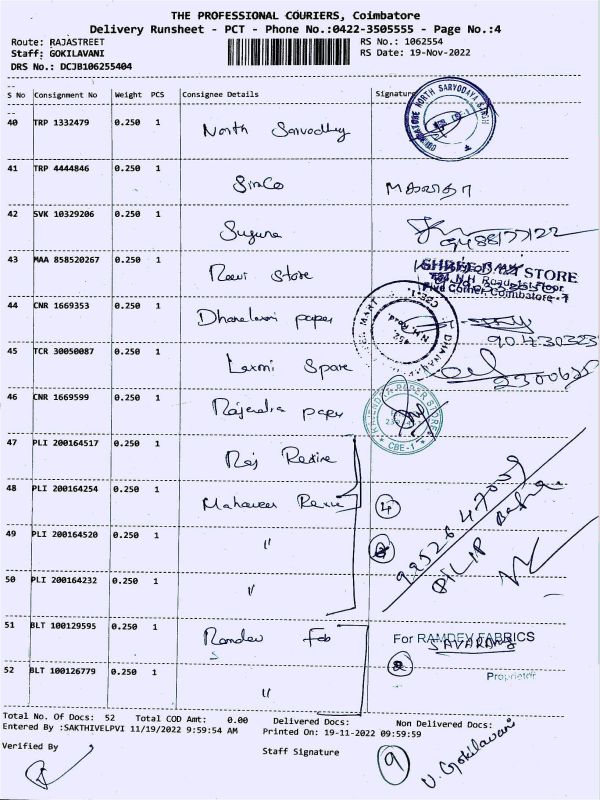 THE PROFESSIONAL COURIERS, Coimbatore
Delivery Runsheet - PCT - Phone No.:0422-3505555 - Page No.:4
Route: RAJASTREET
RS No.: 1062554
Staff: GOKILAVANI
RS Date: 19-Nov-2022
DRS No.: DCJB106255404
S No Consignment No Weight PCS Consignee Details Signature
40 TRP 1332479 0.250 1 North Sarvodhay
COIMBATORE NORTH SARVODAYA SANGH
41 TRP 4444846 0.250 1 SimCo
42 SVK 10329206 0.250 1 Suguna 9488177122
43 MAA 858520267 0.250 1 Ravi Store
STORE
N.H. Road, 1st Floor
Five Corner, Coimbatore - 1
44 CNR 1669353 0.250 1 Dhanalaxmi paper
452, N.H. Road, CBE-1.
45 TCR 30050087 0.250 1 Laxmi Spare
46 CNR 1669599 0.250 1 Rajendra paper
RAJENDRA PAPER STORES CBE-1
47 PLI 200164517 0.250 1 Raj
48 PLI 200164254 0.250 1 Mahaveer 4
49 PLI 200164520 0.250 1 "
50 PLI 200164232 0.250 1 "
DILIP
51 BLT 100129595 0.250 1 Ramdev Fab
For RAMDEV FABRICS
52 BLT 100126779 0.250 1 " 2
Proprietor
Total No. Of Docs: 52 Total COD Amt: 0.00 Delivered Docs: Non Delivered Docs:
Entered By :SAKTHIVELPVI 11/19/2022 9:59:54 AM Printed On: 19-11-2022 09:59:59
Verified By Staff Signature 9 V. Gokilavani